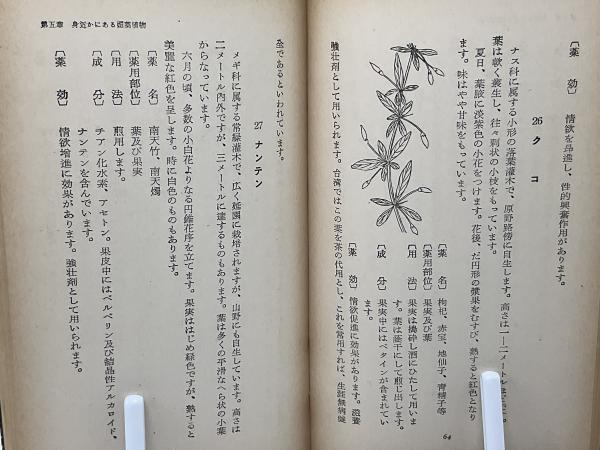 〔薬　効〕　情欲を昂進し、性的興奮作用があります。
26　ク　コ
ナス科に属する小形の落葉灌木で、原野路傍に自生します。高さは一—二メートル
葉は軟く叢生し、往々刺状の小枝をもっています。
夏日、葉腋に淡紫色の小花をつけます。花後、だ円形の漿果をむすび、熟すると紅色となり
ます。味はやや甘味をもっています。
〔薬　名〕　枸杞、赤宝、地仙子、青精子等
〔薬用部位〕　果実及び葉
〔用　法〕　果実は搗砕し酒にひたして用いま
す。葉は蔭干にして煎じ出します。
〔成　分〕　果実中にはベタインが含まれてい
ます。
〔薬　効〕　情欲促進に効果があります。滋養
強壮剤として用いられます。台湾ではこの葉を茶の代用とし、これを常用すれば、生涯無病健
64
第五章　身近かにある媚薬植物
全であるといわれています。
27　ナンテン
メギ科に属する常緑灌木で、広く庭園に栽培されますが、山野にも自生しています。高さは
二メートル内外ですが、三メートルに達するものもあります。葉は多くの平滑なへら状の小葉
からなっています。
六月の頃、多数の小白花よりなる円錐花序を立てます。果実ははじめ緑色ですが、熟すると
美麗な紅色を呈します。時に白色のものもあります。
〔薬　名〕　南天竹、南天燭
〔薬用部位〕　葉及び果実
〔用　法〕　煎用します。
〔成　分〕　チアン化水素、アセトン。果皮中にはベルベリン及び結晶性アルカロイド、
ナンテンを含んでいます。
〔薬　効〕　情欲増進に効果があります。強壮剤として用いられます。